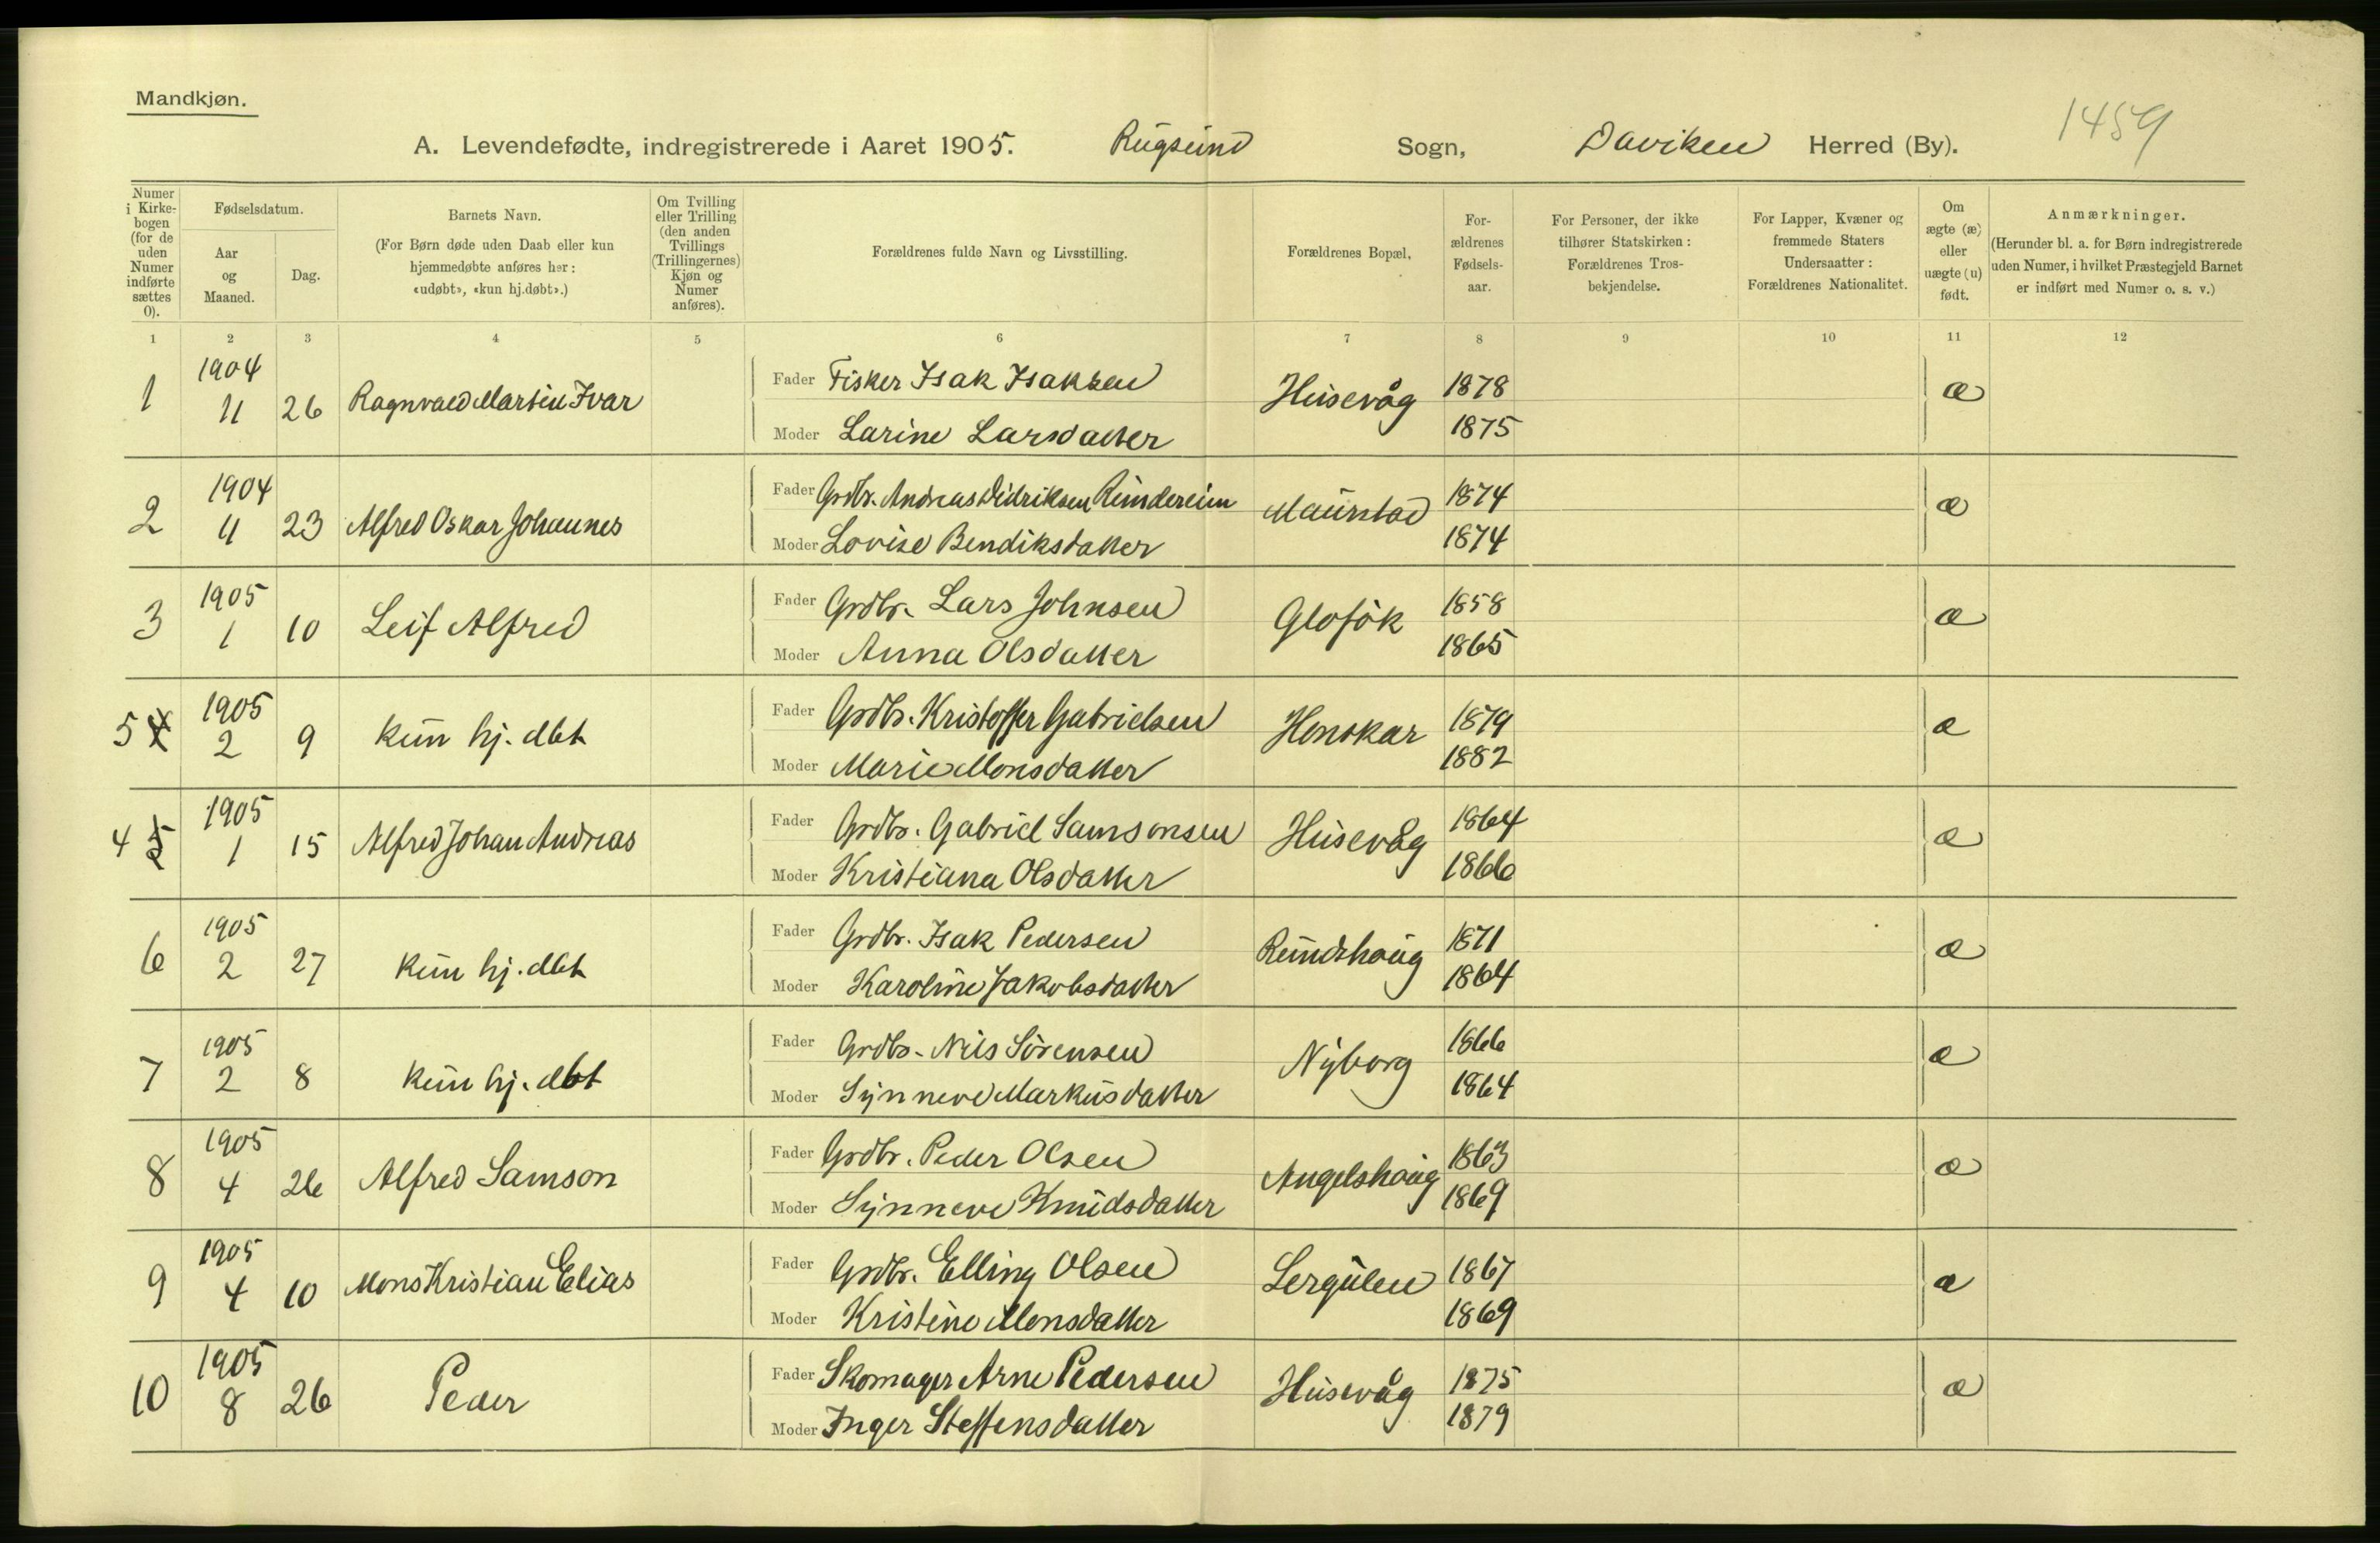 Mandkjøn.
1459
A. Levendefødte, indregistrerede i Aaret 1905. Rugsund Sogn, Daviken Herred (By).
Numer i Kirkebogen (for de uden Numer indførte sættes 0).
Fødselsdatum.
Aar og Maaned.
Dag.
Barnets Navn.
(For Børn døde uden Daab eller kun hjemmedøbte anføres her: «udøbt», «kun hj.døbt».)
Om Tvilling eller Trilling (den anden Tvillings (Trillingernes) Kjøn og Numer anføres).
Forældrenes fulde Navn og Livsstilling.
Forældrenes Bopæl,
Forældrenes Fødselsaar.
For Personer, der ikke tilhører Statskirken: Forældrenes Trosbekjendelse.
For Lapper, Kvæner og fremmede Staters Undersaatter: Forældrenes Nationalitet.
Om ægte (æ) eller uægte (u) født.
Anmærkninger.
(Herunder bl. a. for Børn indregistrerede uden Numer, i hvilket Præstegjeld Barnet er indført med Numer o. s. v.)
1 2 3 4 5 6 7 8 9 10 11 12
1 1904 11 26 Ragnvald Martin Ivar Fader Fisker Isak Isaksen Husevåg 1878 æ
Moder Larine Larsdatter 1875
2 1904 11 23 Alfred Oskar Johannes Fader Grdbr. Andreas Didriksen Rundereim Maurstad 1874 æ
Moder Lovise Bendiksdatter 1874
3 1905 1 10 Leif Alfred Fader Grdbr. Lars Johnsen Gloføk 1858 æ
Moder Anna Olsdatter 1865
5 4 1905 2 9 kun hj. dbt Fader Grdbr. Kristoffer Gabrielsen Honskar 1879 æ
Moder Marie Monsdatter 1882
4 5 1905 1 15 Alfred Johan Andreas Fader Grdbr. Gabriel Samsonsen Husevåg 1864 æ
Moder Kristiana Olsdatter 1866
6 1905 2 27 kun hj. dbt Fader Grdbr. Isak Pedersen Rundshaug 1871 æ
Moder Karoline Jakobsdatter 1864
7 1905 2 8 kun hj. dbt Fader Grdbr. Nils Sörensen Nyborg 1866 æ
Moder Synneve Markusdatter 1864
8 1905 4 26 Alfred Samson Fader Grdbr. Peder Olsen Angelshaug 1863 æ
Moder Synneve Knudsdatter 1869
9 1905 4 10 Mons Kristian Elias Fader Grdbr. Elling Olsen Lergulen 1867 æ
Moder Kristine Monsdatter 1869
10 1905 8 26 Peder Fader Skomager Arne Pedersen Husevåg 1875 æ
Moder Inger Steffensdatter 1879